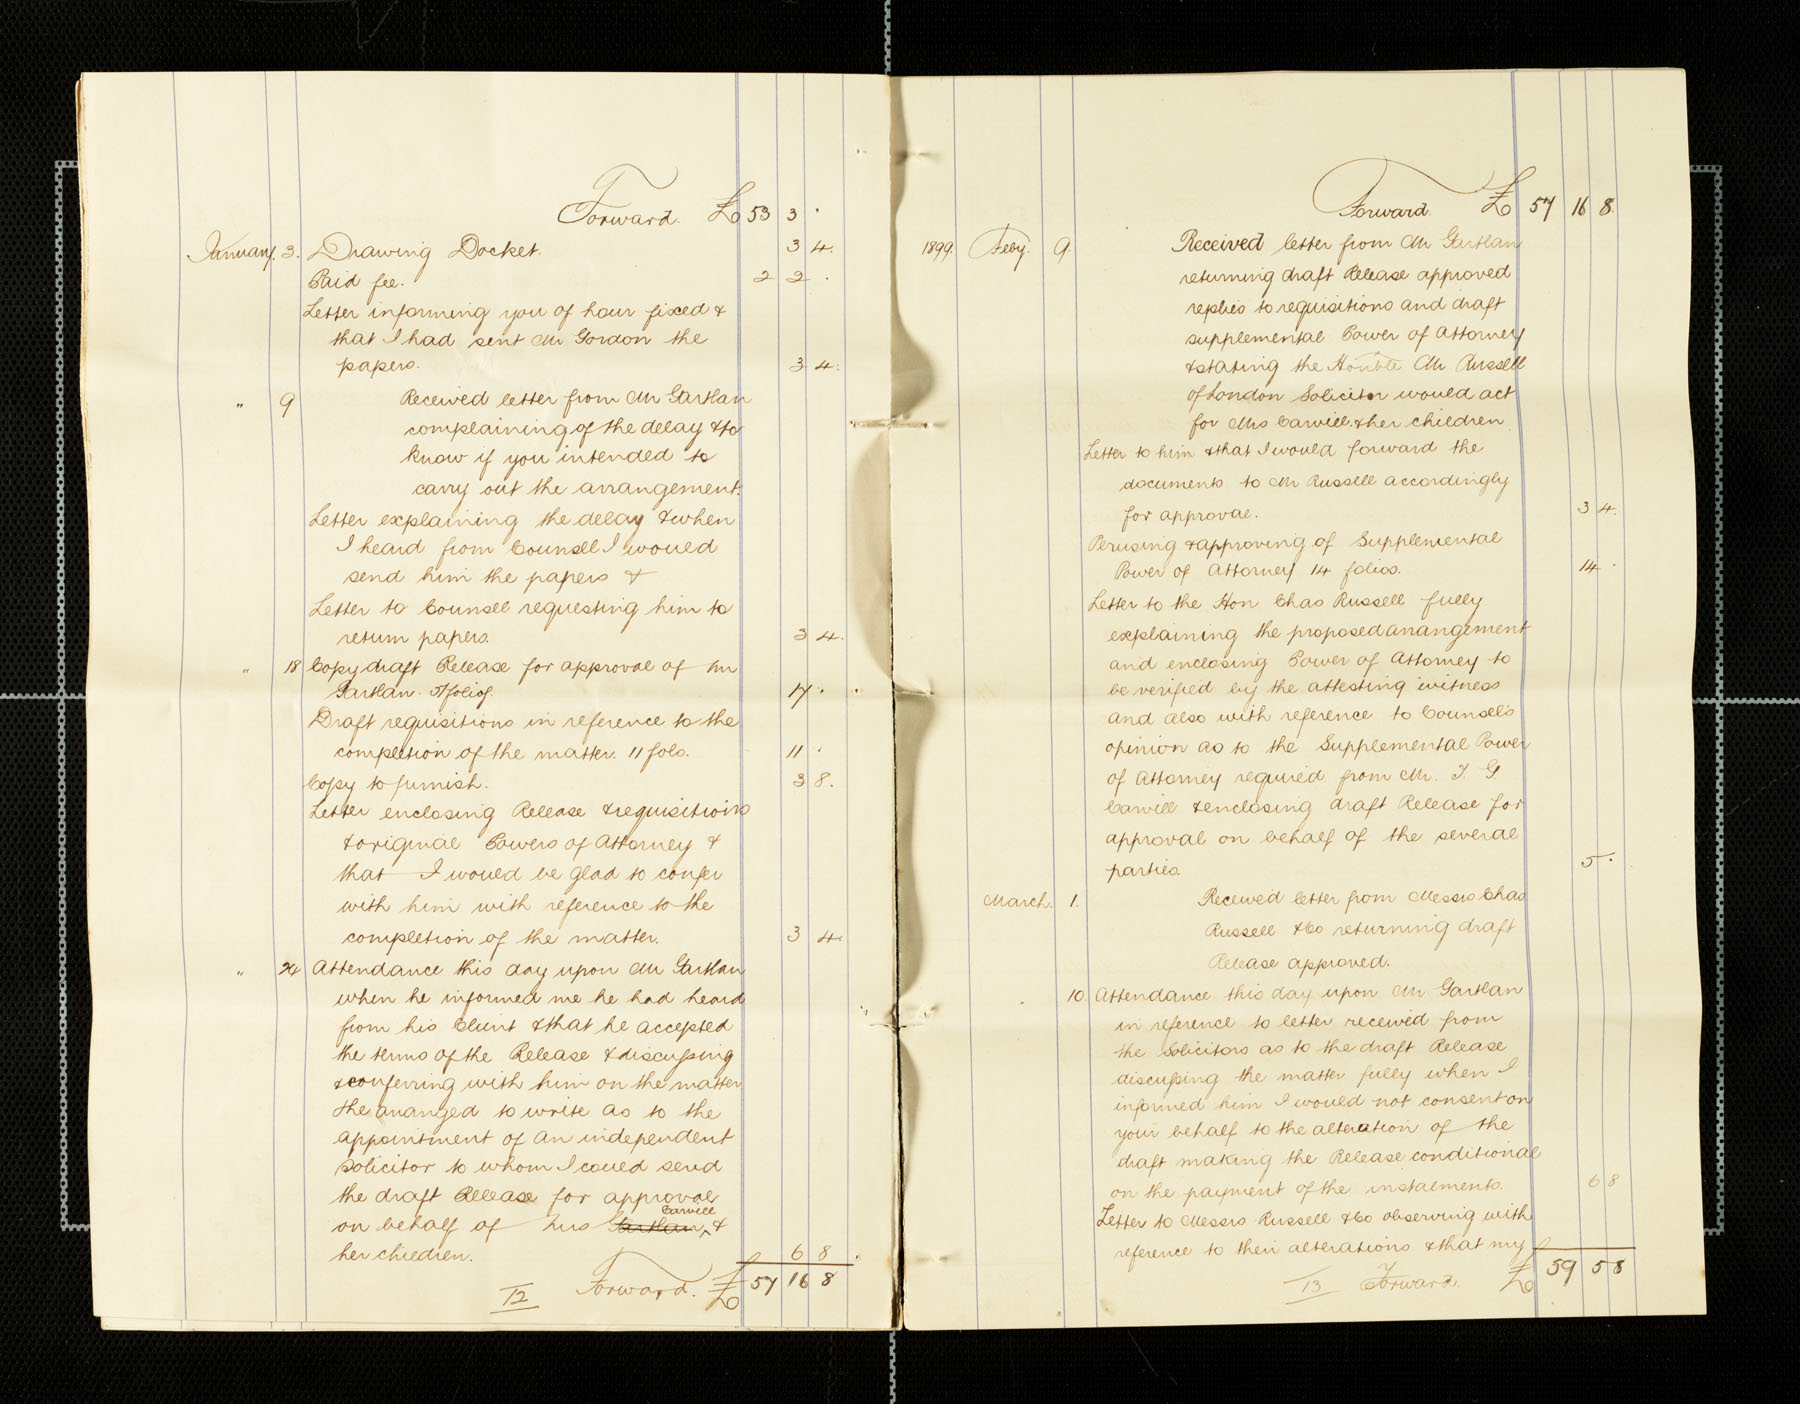 Forward. £ 53 3 .
January. 3. Drawing Docket. 3 4.
Paid fee. 2 2 .
Letter informing you of hour fixed &
that I had sent Mr Gordon the
papers. 3 4.
" 9 Received letter from Mr Gartlan
complaining of the delay & to
know if you intended to
carry out the arrangement.
Letter explaining the delay & when
I heard from Counsel I would
send him the papers &
Letter to Counsel requesting him to
return papers. 3 4.
" 18 Copy draft Release for approval of Mr
Gartlan. folios. 17 .
Draft requisitions in reference to the
completion of the matter. 11 fols. 11 .
Copy to furnish. 3 8.
Letter enclosing Release & requisitions
& original Powers of Attorney &
that I would be glad to confer
with him with reference to the
completion of the matter. 3 4
" 24 Attendance this day upon Mr Gartlan
when he informed me he had heard
from his Client & that he accepted
the terms of the Release & discussing
& conferring with him on the matter
& he arranged to write as to the
appointment of an independent
Solicitor to whom I could send
the draft Release for approval
on behalf of Mrs Gartlan Carvill &
her children. 6 8
12 Forward. £ 57 16 8
Forward. £ 57 16 8.
1899. Feby. 9. Received letter from Mr Gartlan
returning draft Release approved
replies to requisitions and draft
supplemental Power of Attorney
& stating the Honble Mr Russell
of London Solicitor would act
for Mrs Carvill & her children.
Letter to him & that I would forward the
documents to Mr Russell accordingly
for approval. 3 4.
Perusing & approving of Supplemental
Power of Attorney 14 folios. 14 .
Letter to the Hon Chas Russell fully
explaining the proposed arrangement
and enclosing Power of Attorney to
be verified by the attesting witness
and also with reference to Counsel's
opinion as to the Supplemental Power
of Attorney required from Mr. F. G.
Carvill & enclosing draft Release for
approval on behalf of the several
parties. 5 .
March. 1. Received letter from Messrs Chas
Russell & Co returning draft
Release approved.
10. Attendance this day upon Mr Gartlan
in reference to letter received from
the Solicitors as to the draft Release
discussing the matter fully when I
informed him I would not consent on
your behalf to the alteration of the
draft making the Release conditional
on the payment of the instalments. 6 8
Letter to Messrs Russell & Co observing with
reference to their alterations & that my
13 Forward. £ 59 5 8